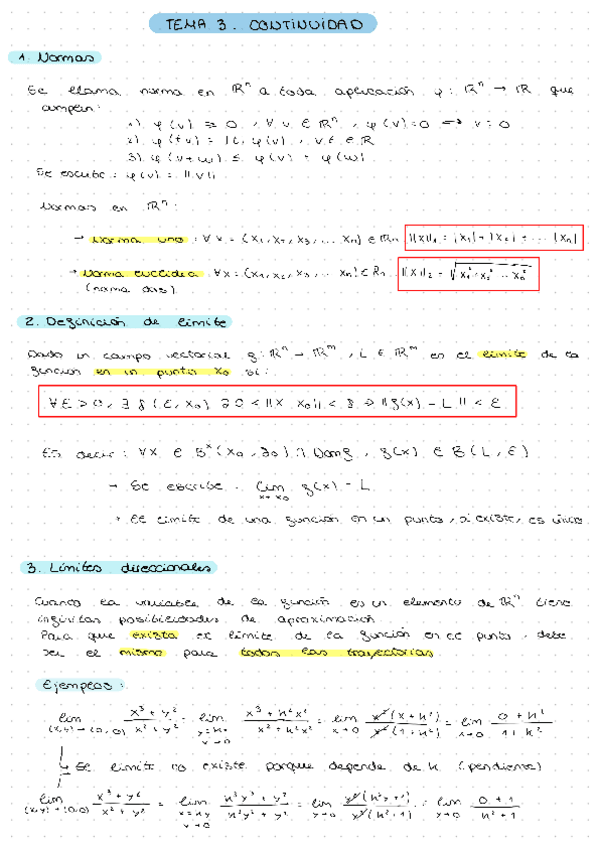 TEMA 3. CONTINUIDAD
1. Normas
Se llama norma en ℝⁿ a toda aplicación φ: ℝⁿ → ℝ que
cumplen:
1) φ(v) ≥ 0, ∀ v ∈ ℝⁿ, φ(v) = 0 ⟺ v = 0
2) φ(tv) = |t| φ(v), ∀ t ∈ ℝ
3) φ(v+w) ≤ φ(v) + φ(w)
Se escribe: φ(v) = ||v||
Normas en ℝⁿ:
→ Norma uno: ∀ x = (x₁, x₂, x₃, ... xₙ) ∈ ℝn ||x||₁ = |x₁| + |x₂| + ... |xₙ|
→ Norma euclídea: ∀x = (x₁, x₂, x₃ ... xₙ) ∈ ℝn ||x||₂ = √x₁² + x₂² ... xₙ²
(norma dos)
2. Definición de límite
Dado un campo vectorial f: ℝⁿ → ℝᵐ, L ∈ ℝᵐ es el límite de la
función en un punto x₀ si:
∀ε > 0, ∃ δ(ε, x₀) ∋ 0 < ||x - x₀|| < δ ⇒ ||f(x) - L|| < ε
Es decir: ∀x ∈ B*(x₀, ) ∩ Dom f, f(x) ∈ B(L, ε)
→ Se escribe: lim x→x₀ f(x) = L
→ El límite de una función en un punto, si existe, es único.
3. Límites direccionales
Cuando la variable de la función es un elemento de ℝⁿ tiene
infinitas posibilidades de aproximación.
Para que exista el límite de la función en el punto, debe
ser el mismo para todas las trayectorias
Ejemplos:
lim (x,y)→(0,0) x³+y²/x²+y² = lim y=kx x→0 x³+k²x²/x²+k²x² = lim x→0 x²(x+k²)/x²(1+k²) = lim x→0 0+k²/1+k²
↳ Se límite no existe porque depende de k (pendiente)
lim (x,y)→(0,0) x³+y²/x²+y² = lim x=ky y→0 k³y³+y²/k²y²+y² = lim y→0 y²(k³y+1)/y²(k²+1) = lim y→0 0+1/k²+1